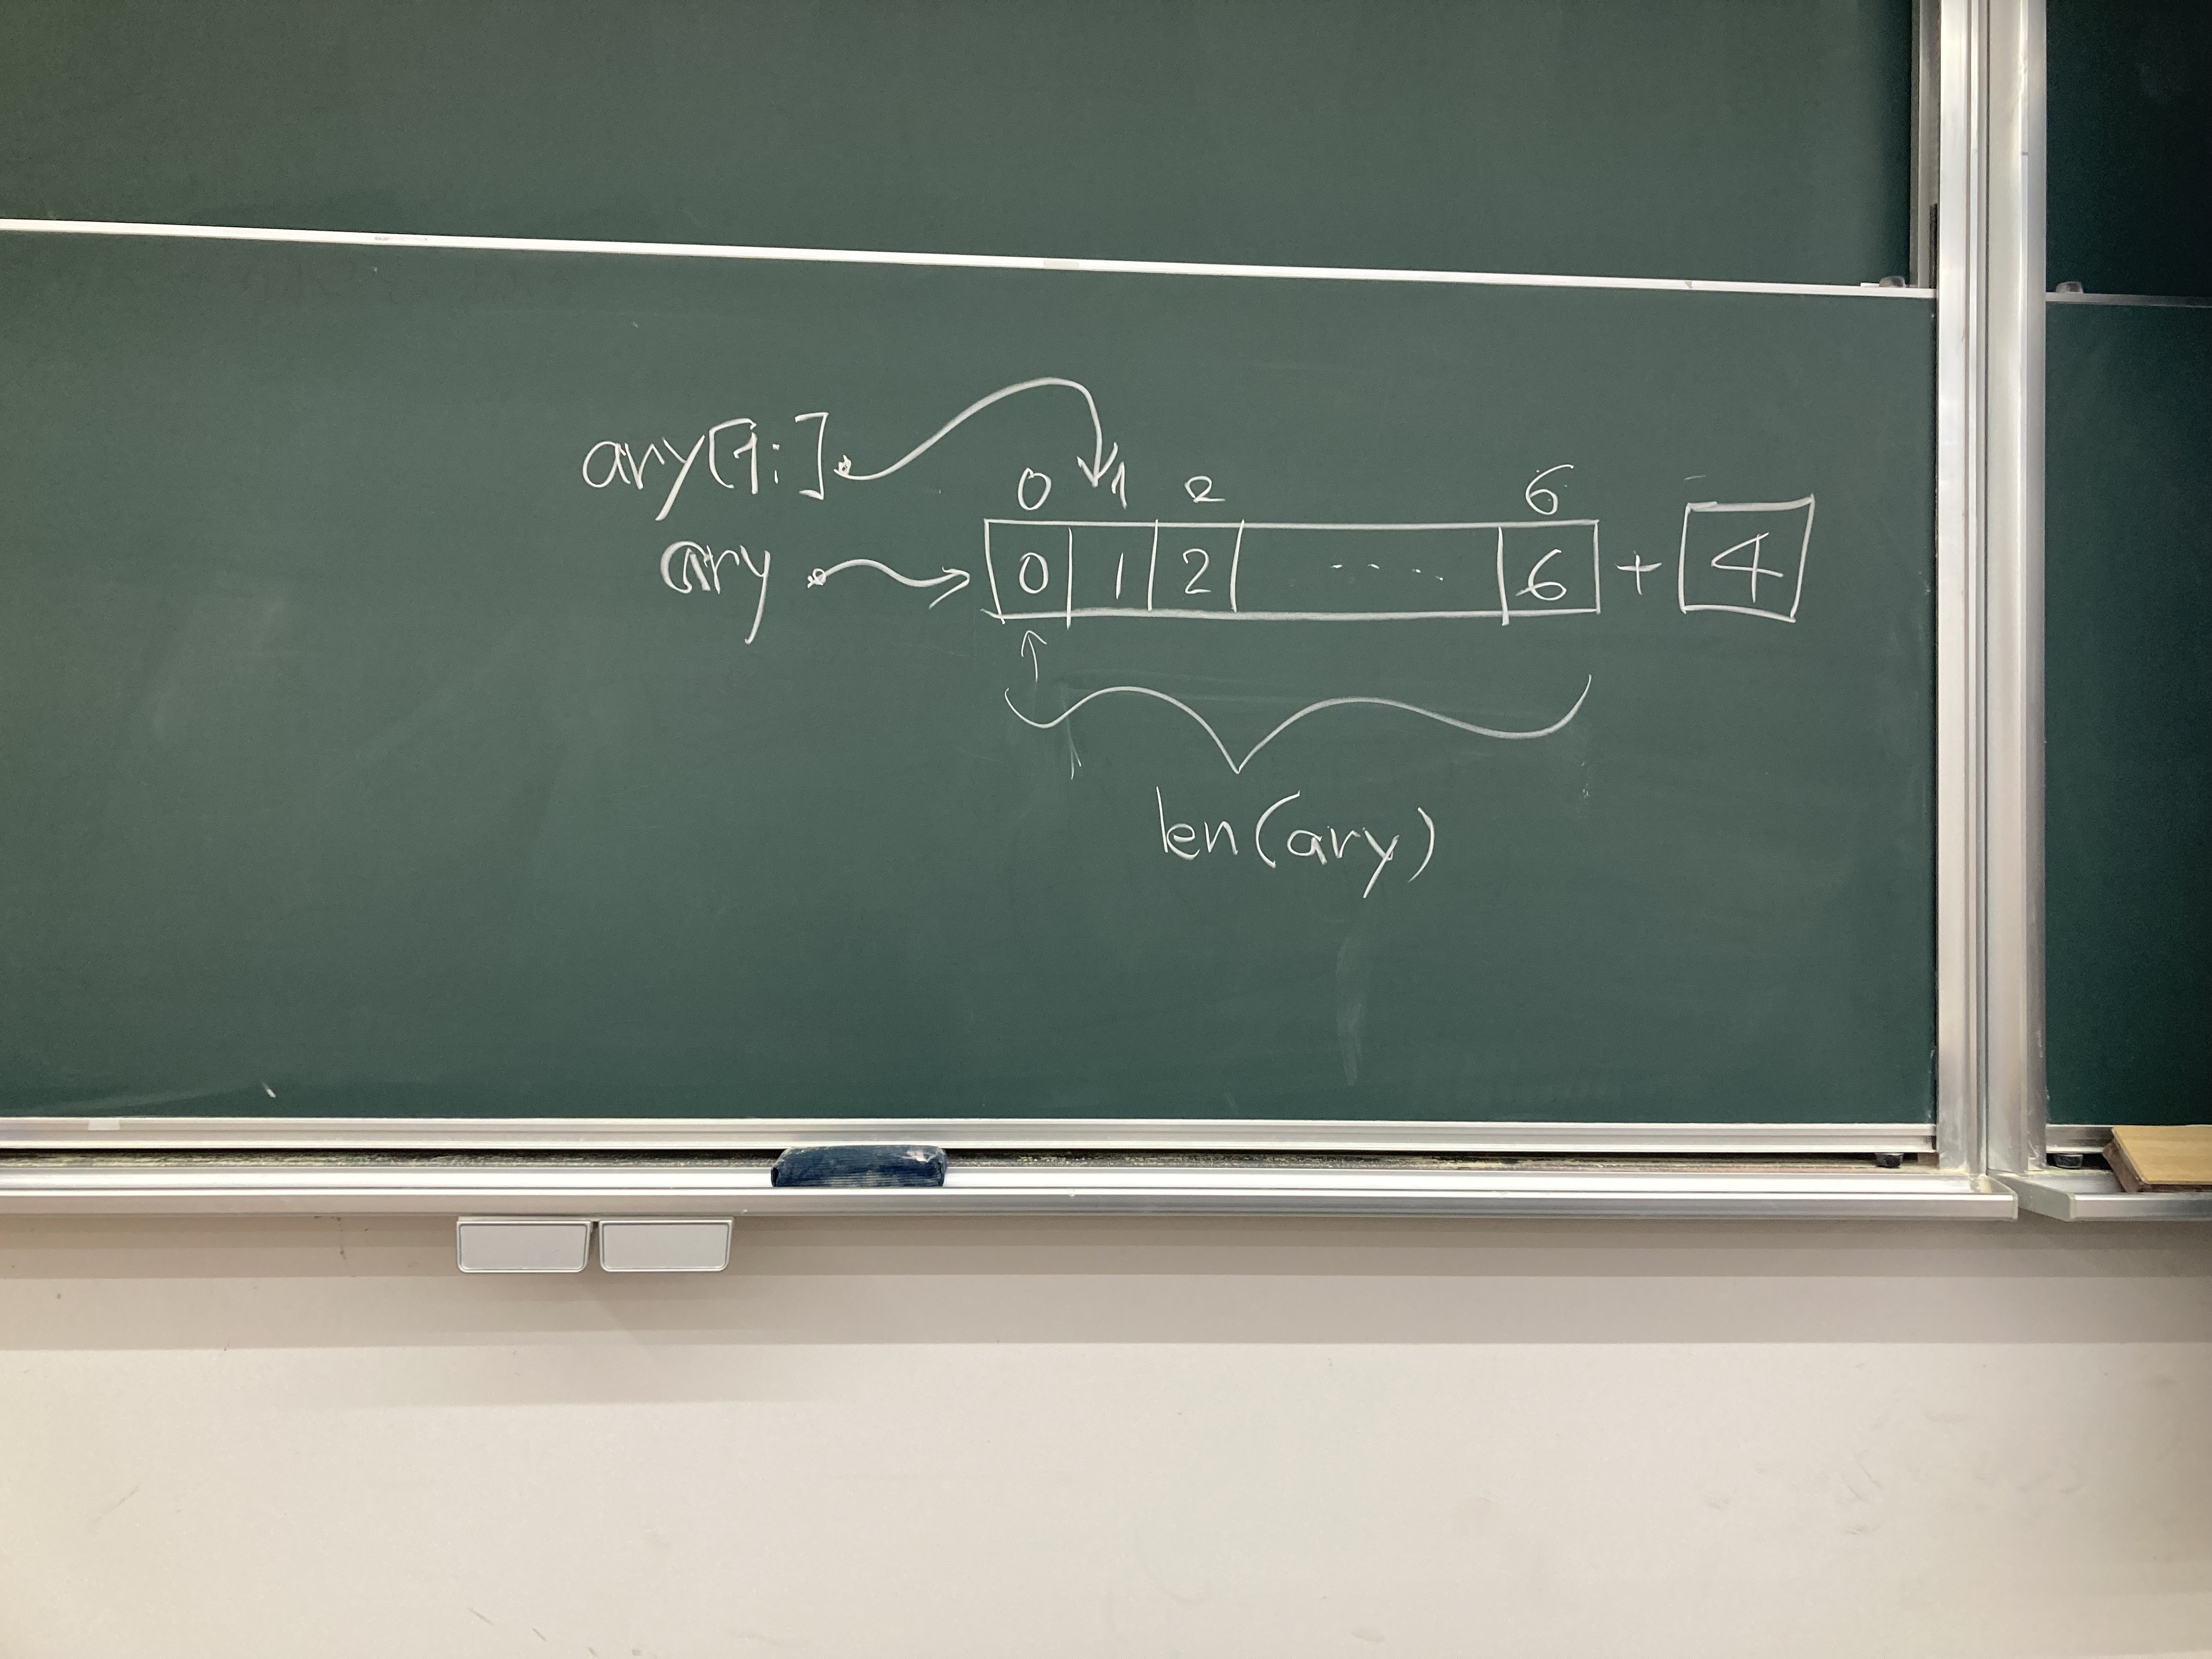 ary[1:]
0 1 2 6
ary 0 1 2 .... 6 + 4
len(ary)